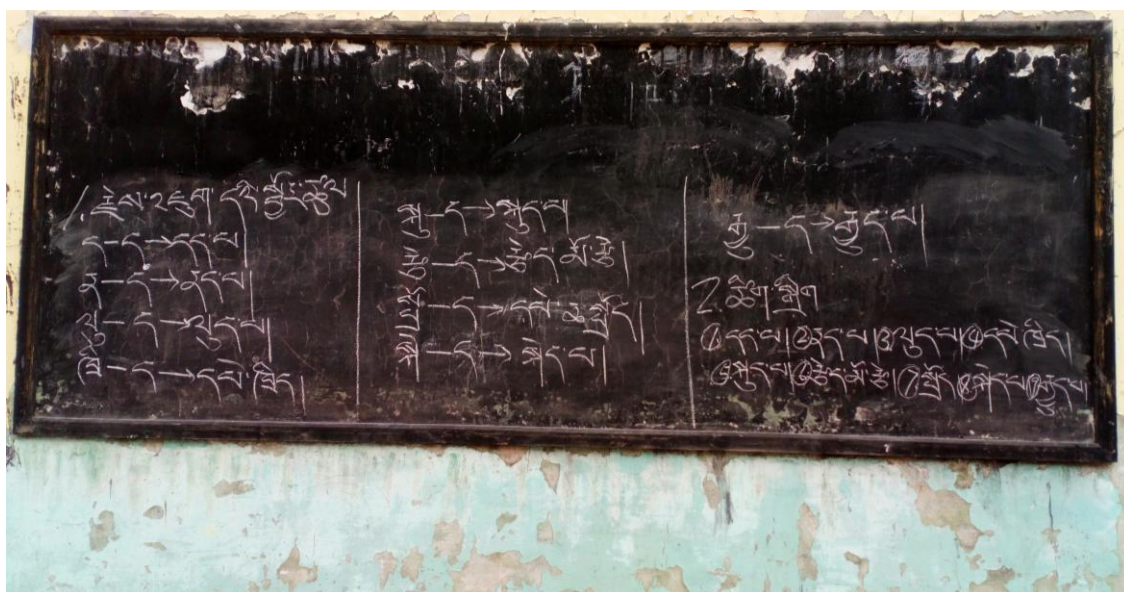 1. རྗེས་འཇུག དའི་སྦྱོར་ཚུལ
ད — ད → དད་པ།
ན — ད → ནད་པ།
ལུ — ད → ལུད་པ།
ཁྲི — ད → དཔེ་ཁྲིད།
སྐུ — ད → སྐུད་པ།
རྩེ — ད → རྩེད་མོ་རྩེ།
སྤྲོ — ད → དཔེ་ཆ་སྤྲོད།
སྐེ — ད → སྐེད་པ།
རྒྱུ — ད → རྒྱུད་པ།
2 ཚིག་སྒྲིག
①དད་པ།②ནད་པ།③ལུད་པ།④དཔེ་ཁྲིད།
⑤སྐུད་པ།⑥རྩེད་མོ་རྩེ།⑦སྤྲོད།⑧སྐེད་པ།⑨རྒྱུད་པ།